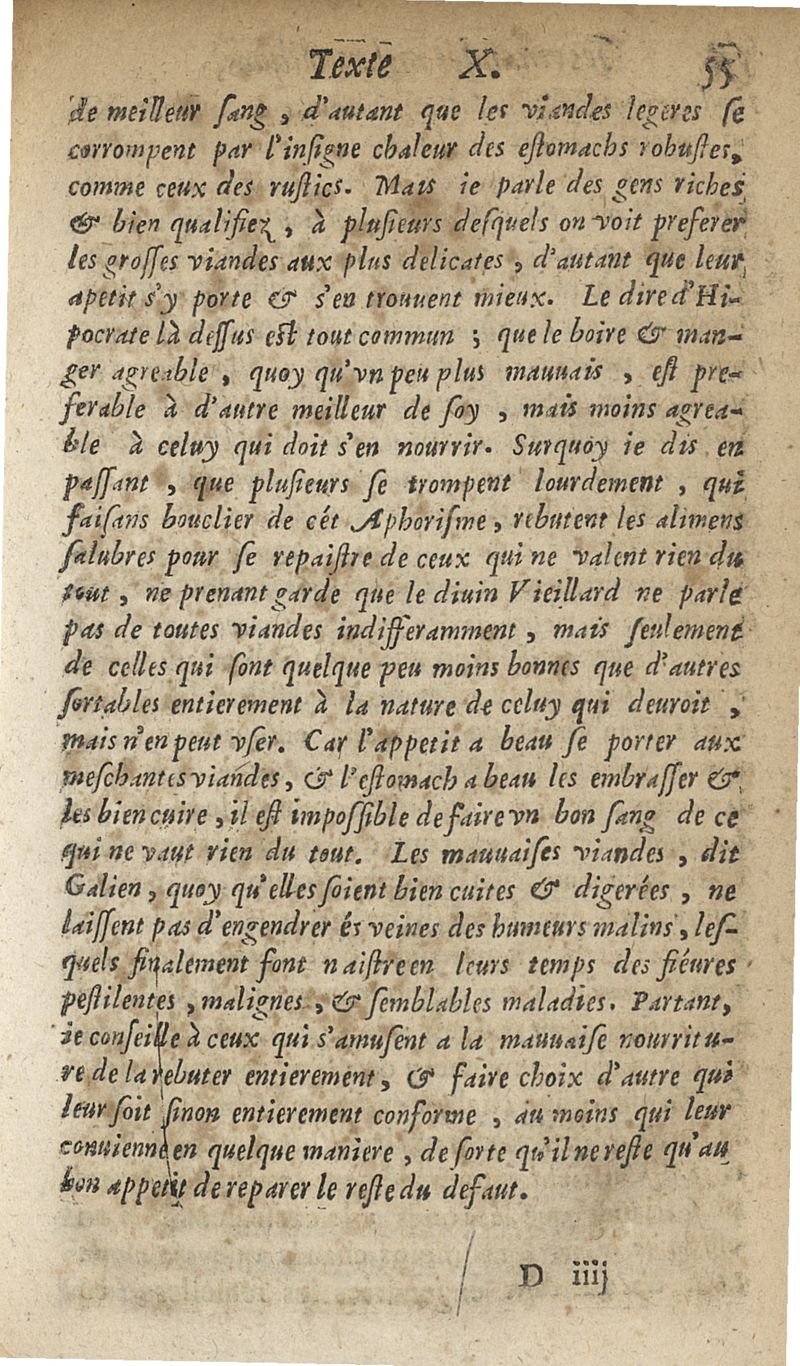 Texte X. 55
de meilleur ſang, d'autant que les viandes legeres ſe
corrompent par l'inſigne chaleur des eſtomachs robuſtes,
comme ceux des ruſtics. Mais ie parle des gens riches
& bien qualifiez, à pluſieurs deſquels on voit preferer
les groſſes viandes aux plus delicates, d'autant que leur
apetit s'y porte & s'en trouuent mieux. Le dire d'Hi-
pocrate là deſſus eſt tout commun ; que le boire & man-
ger agreable, quoy qu'vn peu plus mauuais, eſt pre-
ferable à d'autre meilleur de ſoy, mais moins agrea-
ble à celuy qui doit s'en nourrir. Surquoy ie dis en
paſſant, que pluſieurs ſe trompent lourdement, qui
faiſans bouclier de cét Aphoriſme, rebutent les alimens
ſalubres pour ſe repaiſtre de ceux qui ne valent rien du
tout, ne prenant garde que le diuin Vieillard ne parle
pas de toutes viandes indifferamment, mais ſeulement
de celles qui ſont quelque peu moins bonnes que d'autres
ſortables entierement à la nature de celuy qui deuroit,
mais n'en peut vſer. Car l'appetit a beau ſe porter aux
meſchantes viandes, & l'eſtomach a beau les embraſſer &
les bien cuire, il eſt impoſſible de faire vn bon ſang de ce
qui ne vaut rien du tout. Les mauuaiſes viandes, dit
Galien, quoy qu'elles ſoient bien cuites & digerées, ne
laiſſent pas d'engendrer és veines des humeurs malins, leſ-
quels finalement font naiſtre en leurs temps des fiéures
peſtilentes, malignes, & ſemblables maladies. Partant,
ie conſeille à ceux qui s'amuſent a la mauuaiſe nourritu-
re de la rebuter entierement, & faire choix d'autre qui
leur ſoit ſinon entierement conforme, au moins qui leur
conuienne en quelque maniere, de ſorte qu'il ne reſte qu'au
bon appetit de reparer le reſte du defaut.
D iiij